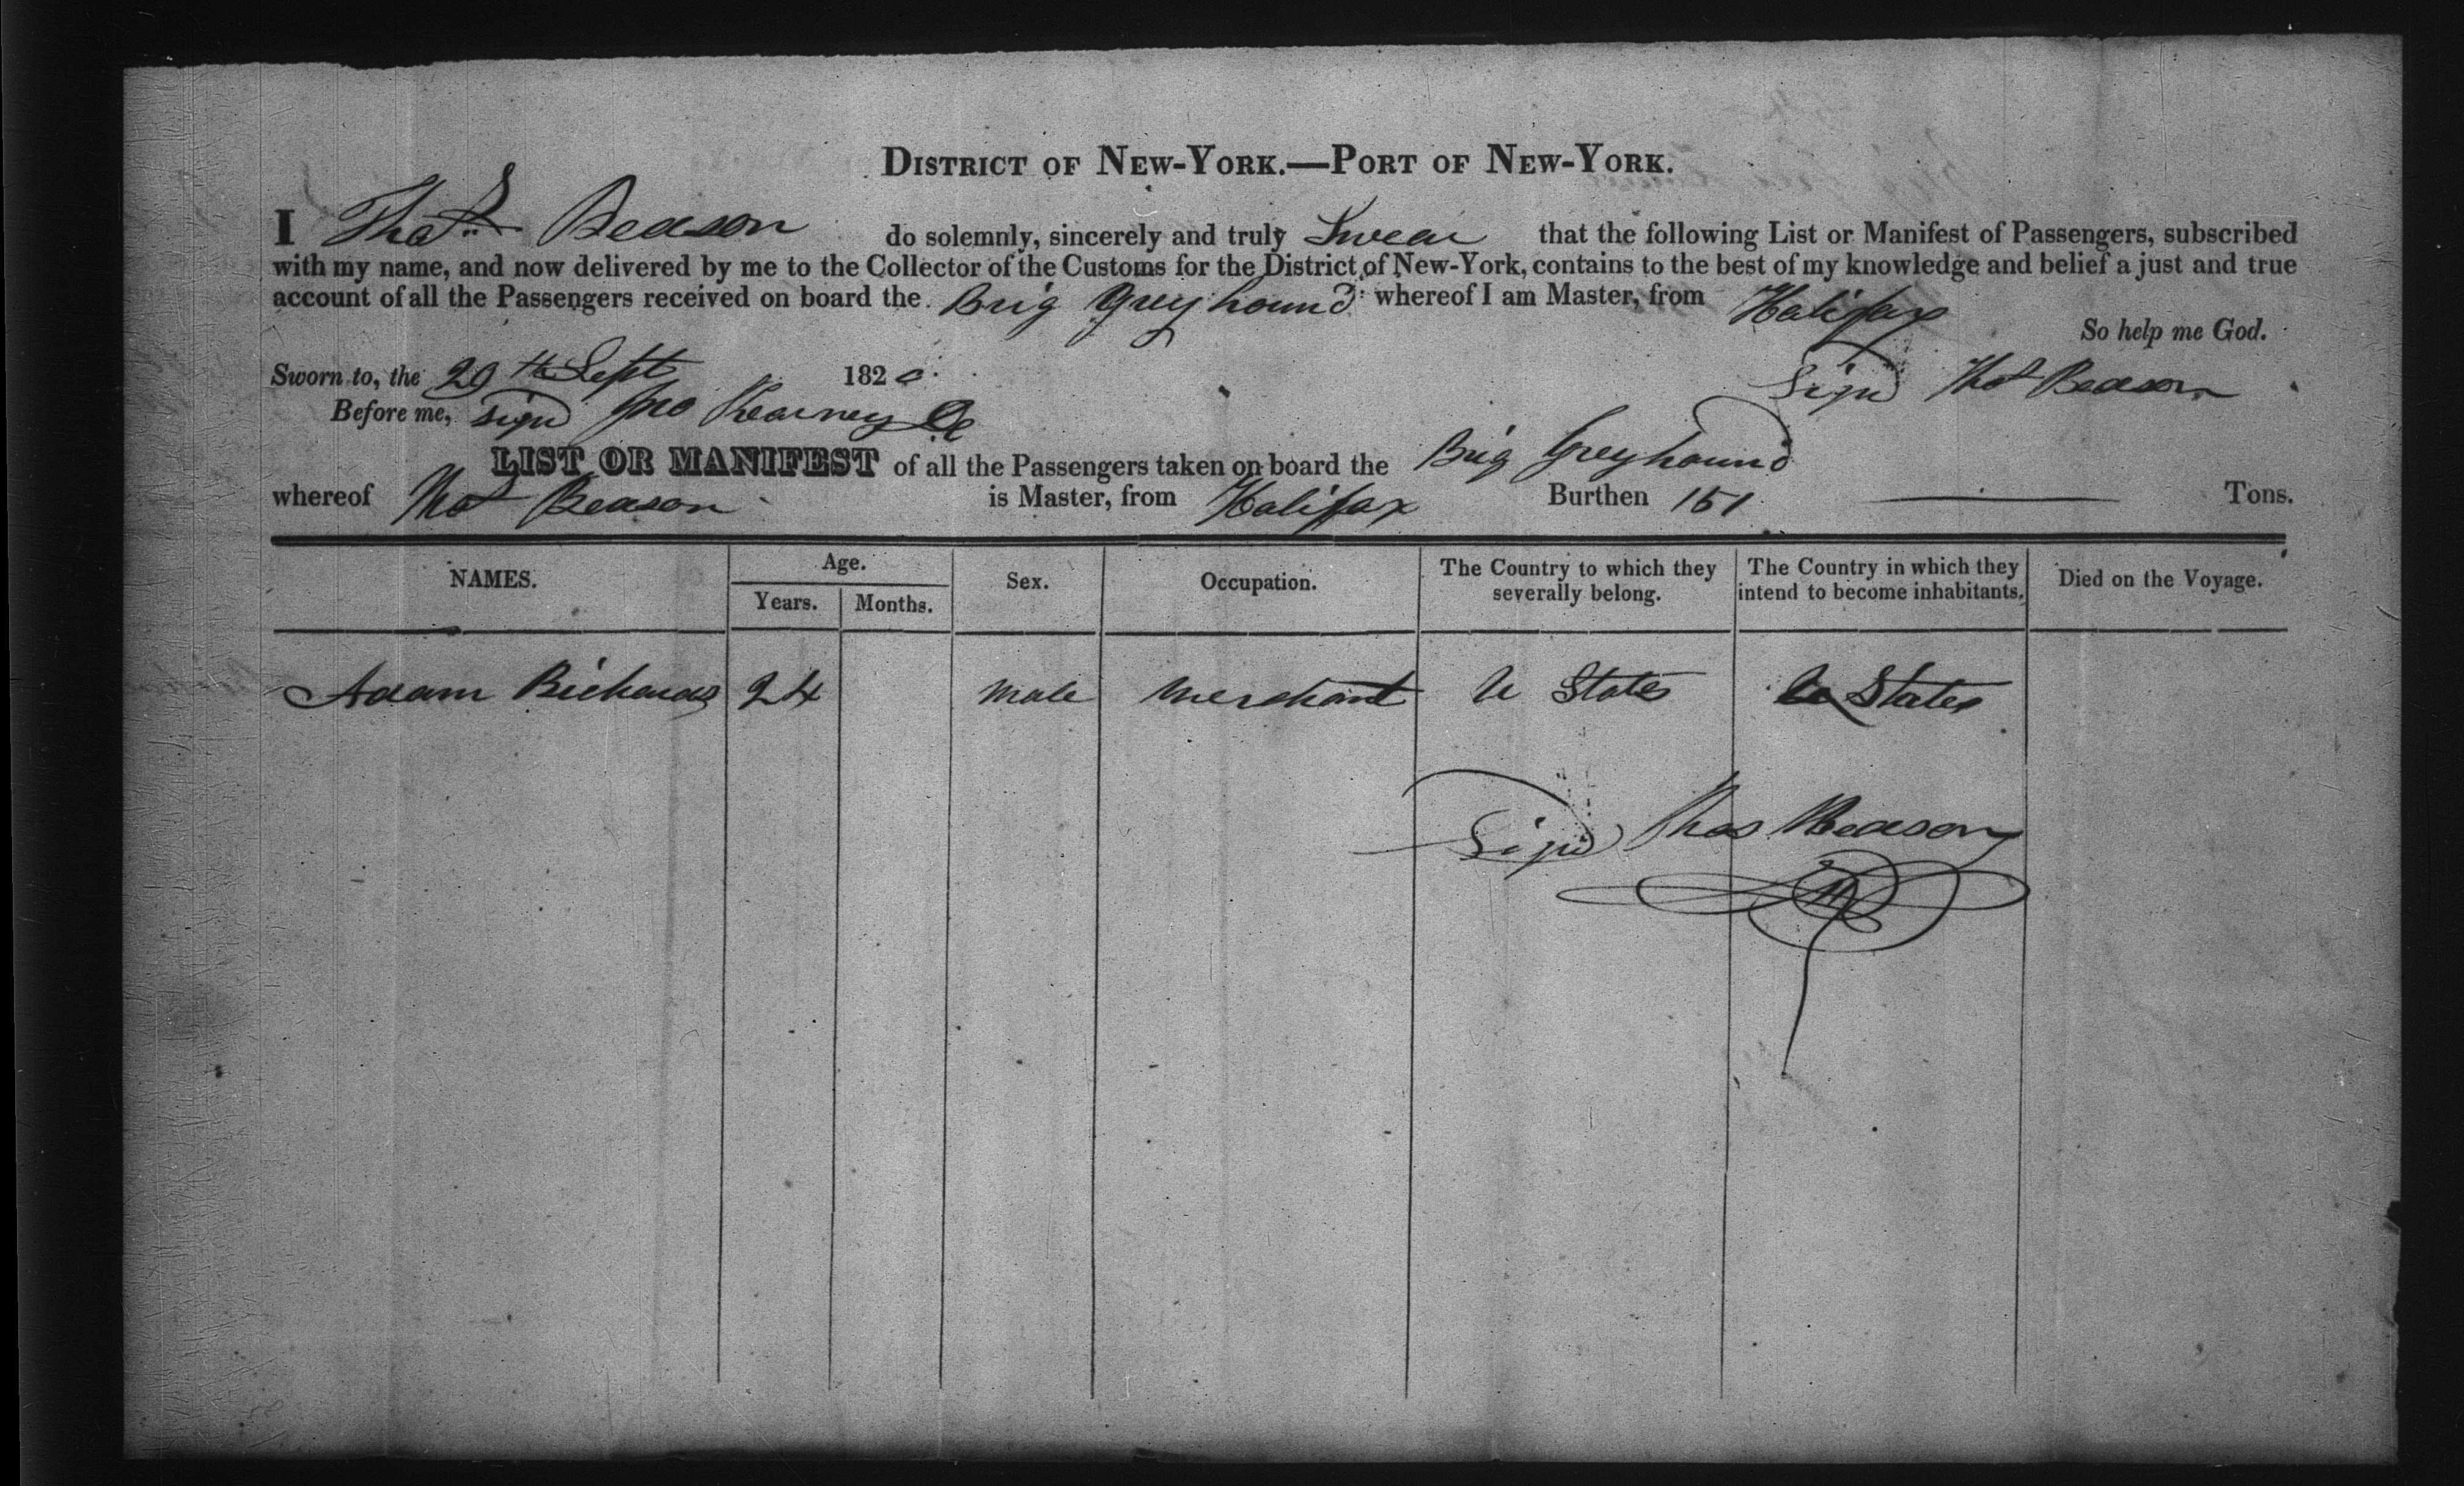 DISTRICT OF NEW-YORK.—PORT OF NEW-YORK.
I Thos Beason do solemnly, sincerely and truly Swear that the following List or Manifest of Passengers, subscribed
with my name, and now delivered by me to the Collector of the Customs for the District of New-York, contains to the best of my knowledge and belief a just and true
account of all the Passengers received on board the Brig Greyhound whereof I am Master, from Halifax
So help me God.
Sworn to, the 29th Sept 1820 Signd Thos Beason
Before me, signd Jno Kearney
LIST OR MANIFEST of all the Passengers taken on board the Brig Greyhound
whereof Thos Beason is Master, from Halifax Burthen 151 Tons.
NAMES. Age. Years. Months. Sex. Occupation. The Country to which they severally belong. The Country in which they intend to become inhabitants. Died on the Voyage.
Adam Richards 24 male merchant U States U States
Signd Thos Beason